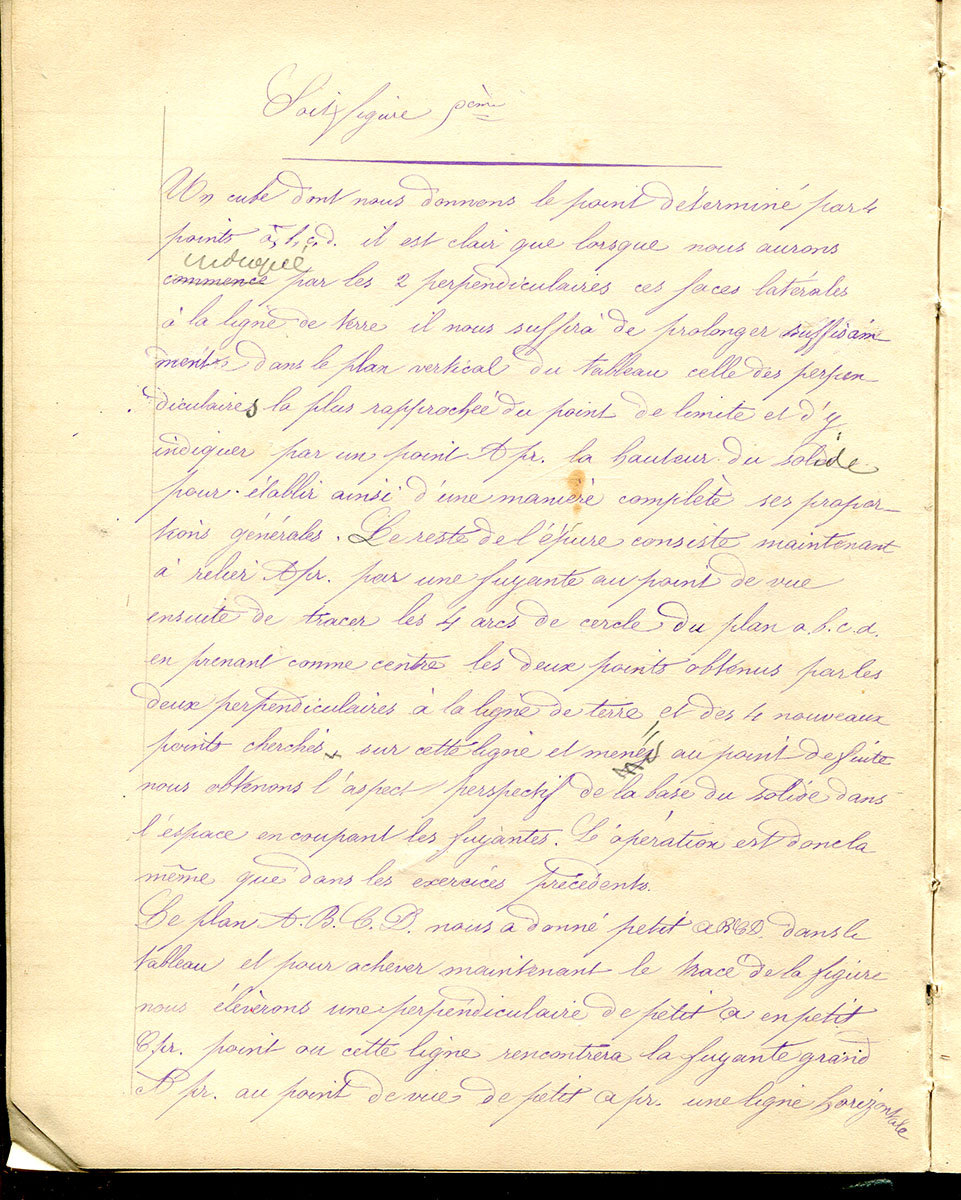 Soit figure 5ème
Un cube dont nous donnons le point déterminé par 4
points a, b, c, d. il est clair que lorsque nous aurons
indiqué
commencé par les 2 perpendiculaires ces faces latérales
à la ligne de terre il nous suffira de prolonger suffisam-
ment dans le plan vertical du tableau celle des perpen-
diculaires la plus rapprochée du point de limite et d'y
indiquer par un point A pr. la hauteur du solide
pour établir ainsi d'une manière complète ses propor-
tions générales. Le reste de l'épure consiste maintenant
à relier A pr. par une fuyante au point de vue
ensuite de tracer les 4 arcs de cercle du plan a. b. c. d.
en prenant comme centre les deux points obtenus par les
deux perpendiculaires à la ligne de terre, et des 4 nouveaux
points cherchés sur cette ligne et menés au point de fuite
nous obtenons l'aspect perspectif de la base du solide dans
l'espace en coupant les fuyantes. L'opération est donc la
même que dans les exercices précédents.
Le plan A. B. C. D. nous a donné petit a B C D. dans le
tableau et pour achever maintenant le tracé de la figure
nous élèverons une perpendiculaire de petit a en petit
pr. point ou cette ligne rencontrera la fuyante grand
A pr. au point de vue de petit a pr. une ligne horizontale